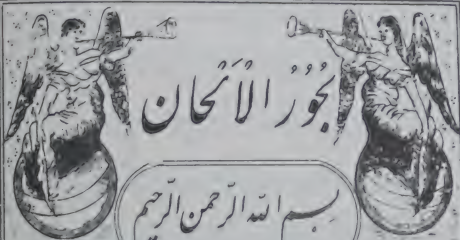 بُحُورُ الْأَلْحَان
بسم الله الرّحمن الرّحيم